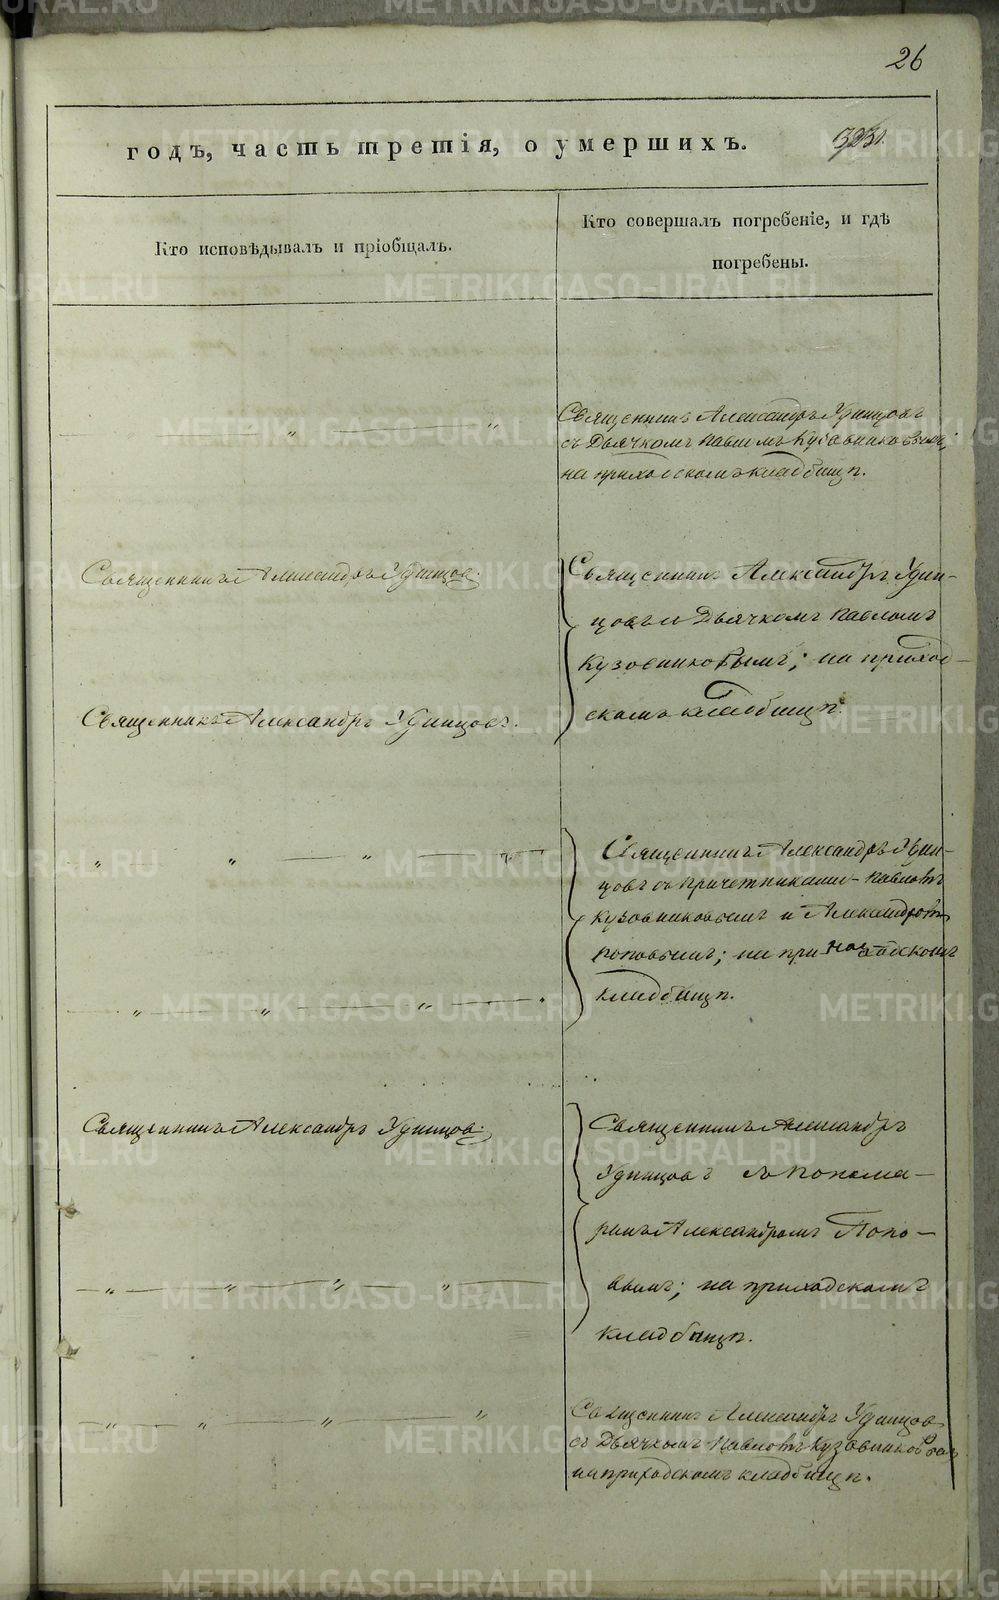 26
годъ, часть третія, о умершихъ.
Кто исповѣдывалъ и пріобщалъ.
Кто совершалъ погребеніе, и гдѣ
погребены.
Священникъ Александръ Удинцовъ
съ Дьячкомъ Павломъ Кузовниковымъ;
на приходскомъ кладбищѣ.
Священникъ Александръ Удинцовъ.
Священникъ Александръ Удин-
цовъ съ Дьячкомъ Павломъ
Кузовниковымъ; на приход-
скомъ кладбищѣ.
Священникъ Александръ Удинцовъ.
Священникъ Александръ Удин-
цовъ съ причетниками Павломъ
Кузовниковымъ и Александромъ
Поповымъ; на
кладбищѣ.
Священникъ Александръ Удинцовъ.
Священникъ Александръ
Удинцовъ съ Понома-
ремъ Александромъ Попо-
вымъ; на приходскомъ
кладбищѣ.
Священникъ Александръ Удинцовъ
съ Дьячкомъ Павломъ Кузовниковымъ
на приходскомъ кладбищѣ.
METRIKI.GASO-URAL.RU